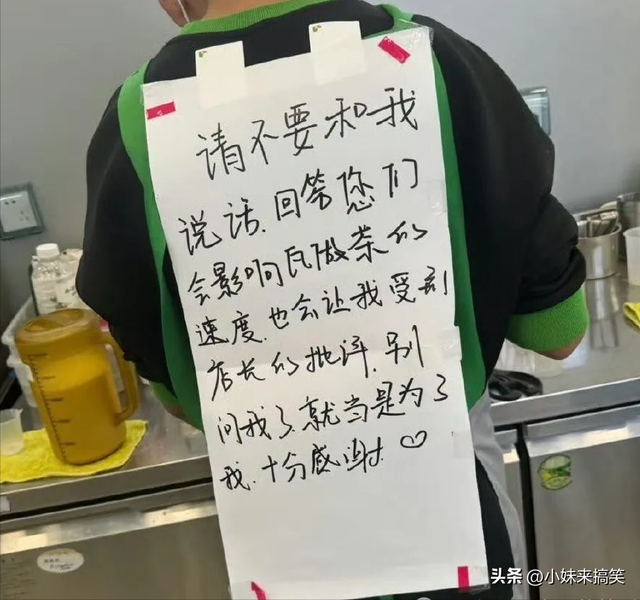 请不要和我
说话.回答您们
会影响瓦做茶的
速度.也会让我受到
店长的批评.别
问我了就当是为了
我.十分感谢♡
头条 @小妹来搞笑